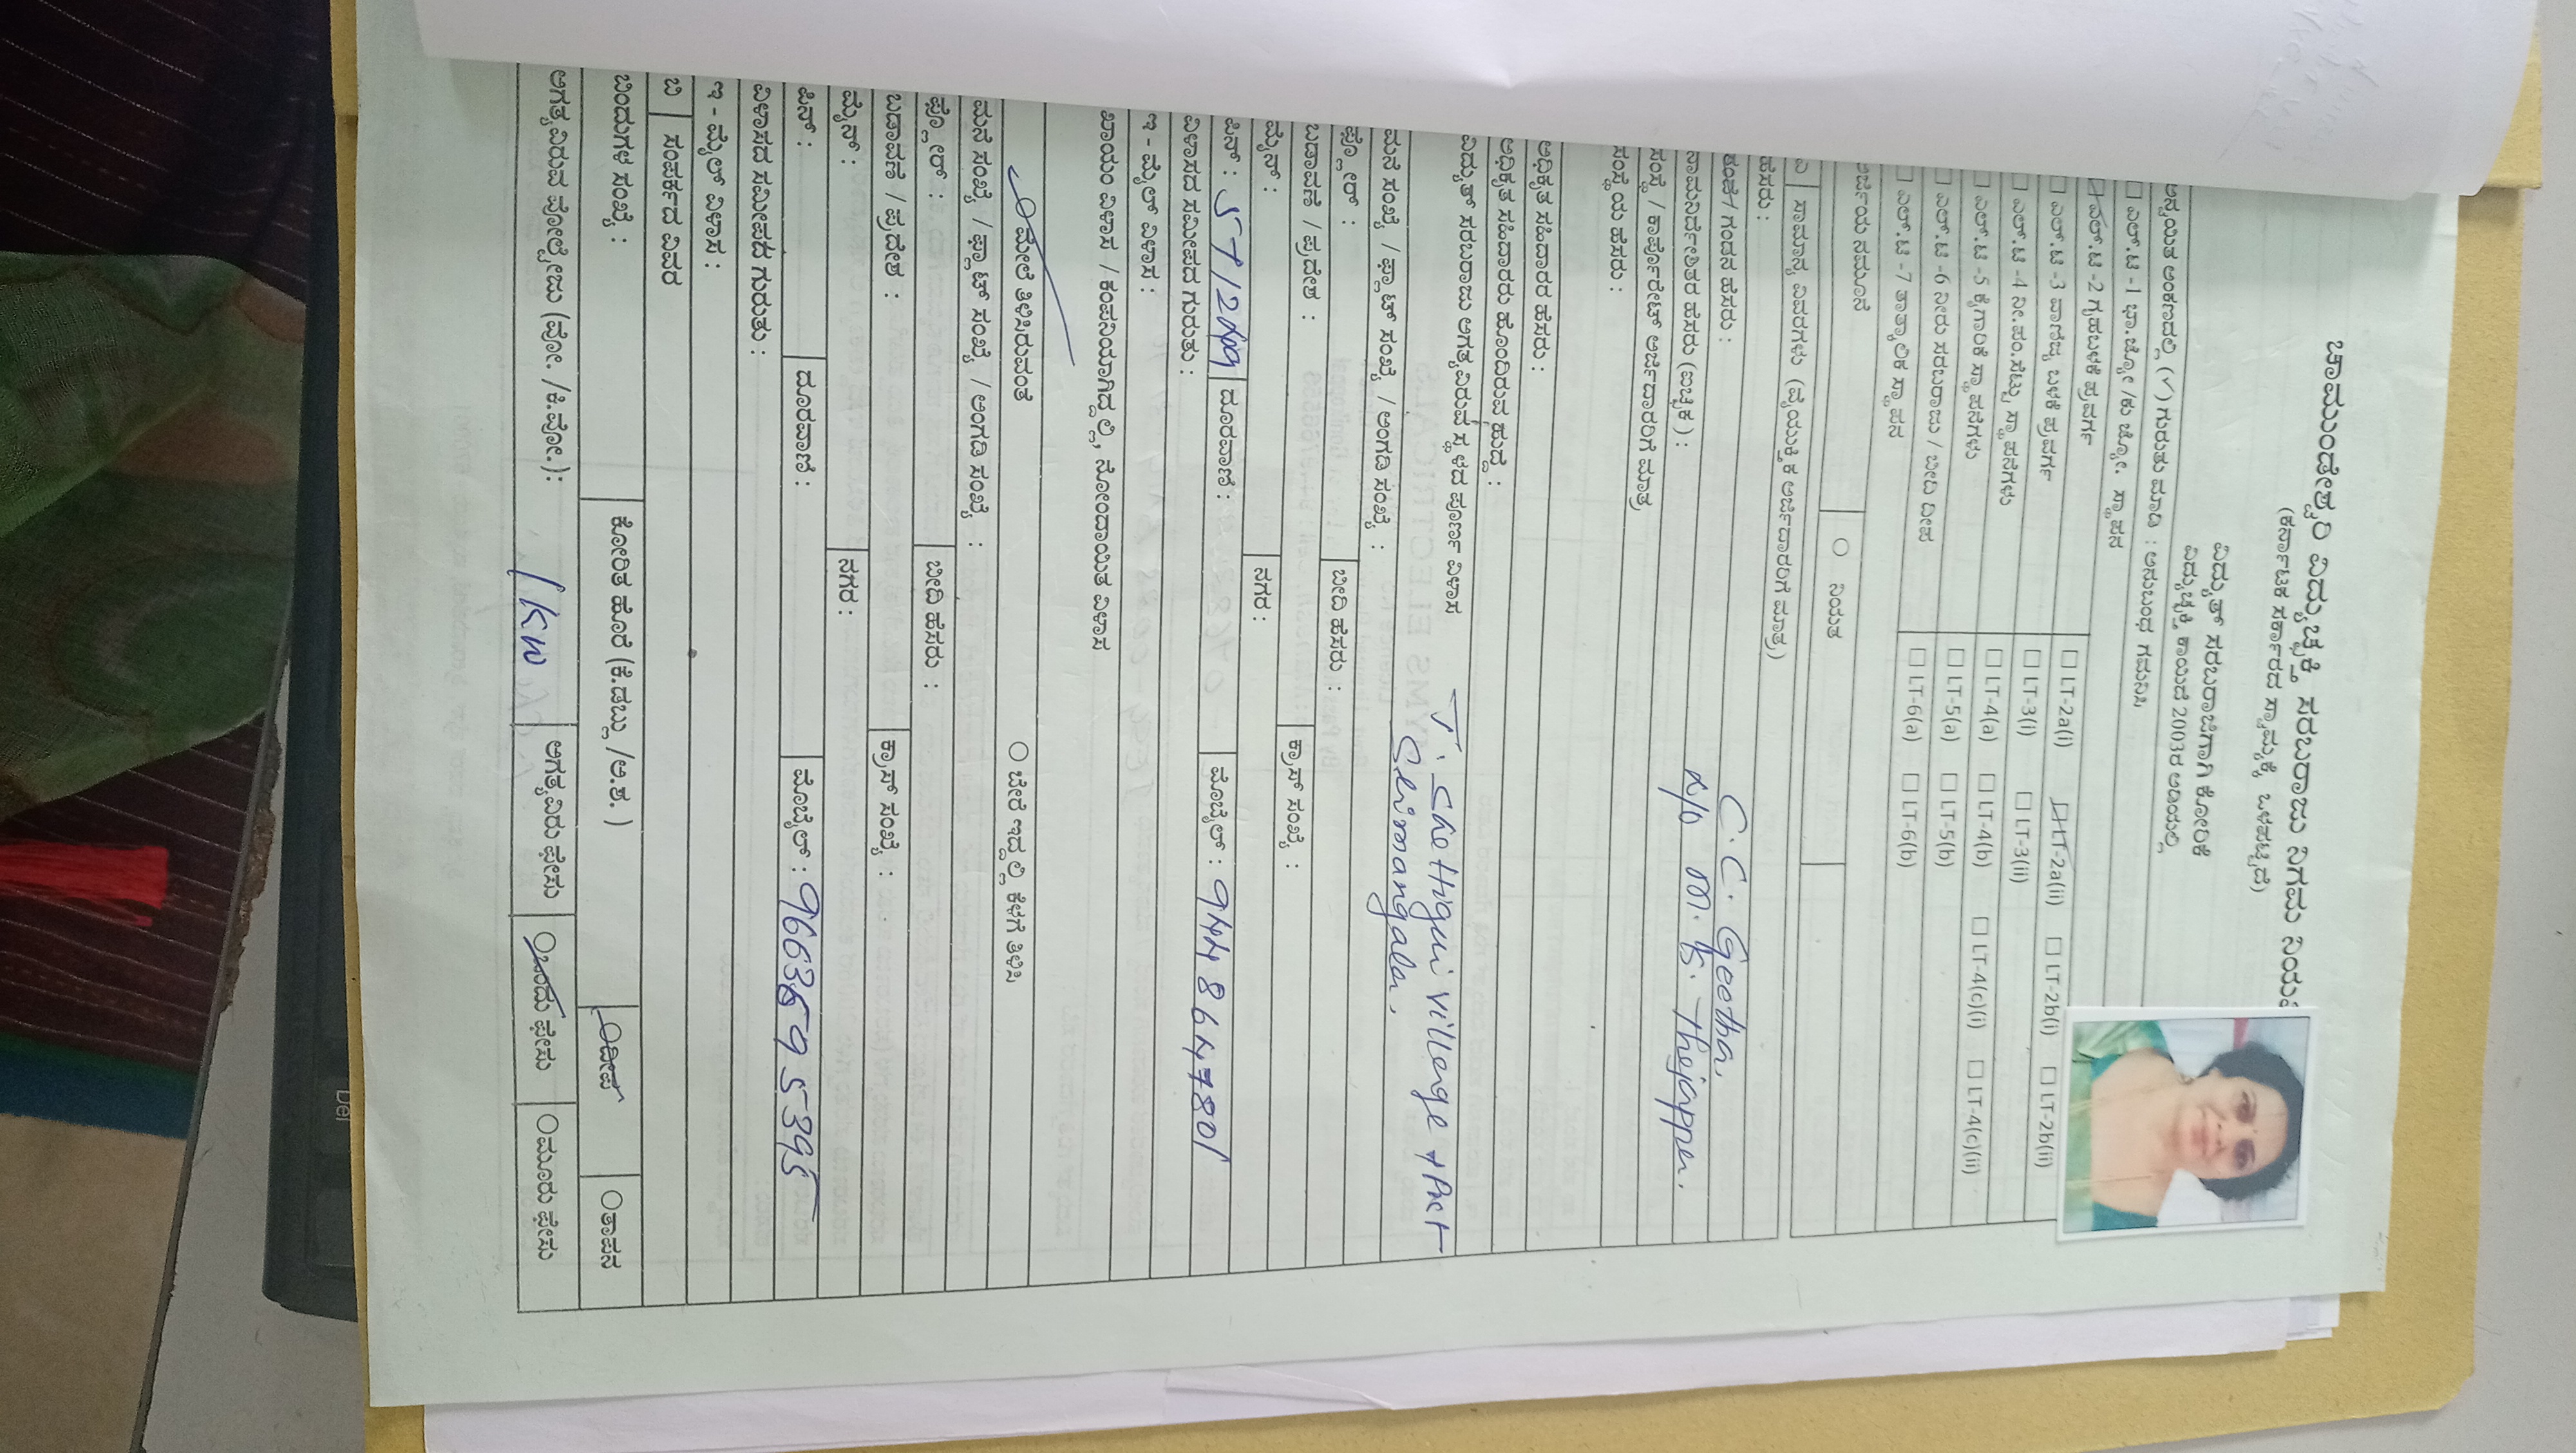 ಚಾಮುಂಡೇಶ್ವರಿ ವಿದ್ಯುಚ್ಛಕ್ತಿ ಸರಬರಾಜು ನಿಗಮ ನಿಯಮಿ
(ಕರ್ನಾಟಕ ಸರ್ಕಾರದ ಸ್ವಾಮ್ಯಕ್ಕೆ ಒಳಪಟ್ಟಿದೆ)
ವಿದ್ಯುತ್ ಸರಬರಾಜಿಗಾಗಿ ಕೋರಿಕೆ
ವಿದ್ಯುಚ್ಛಕ್ತಿ ಕಾಯಿದೆ 2003ರ ಅಡಿಯಲ್ಲಿ
ಅನ್ವಯಿತ ಅಂಕಣದಲ್ಲಿ (✓) ಗುರುತು ಮಾಡಿ : ಅನುಬಂಧ ಗಮನಿಸಿ
☐ ಎಲ್.ಟಿ -1 ಭಾ.ಜ್ಯೋ /ಕು ಜ್ಯೋ. ಸ್ಥಾಪನ
ಎಲ್.ಟಿ -2 ಗೃಹಬಳಕೆ ಪ್ರವರ್ಗ ☐ LT-2a(i) ☑ LT-2a(ii) ☐ LT-2b(i) ☐ LT-2b(ii)
☐ ಎಲ್.ಟಿ -3 ವಾಣಿಜ್ಯ ಬಳಕೆ ಪ್ರವರ್ಗ ☐ LT-3(i) ☐ LT-3(ii)
☐ ಎಲ್.ಟಿ -4 ನೀ.ಪಂ.ಸೆಟ್ಟು ಸ್ಥಾಪನೆಗಳು ☐ LT-4(a) ☐ LT-4(b) ☐ LT-4(c)(i) ☐ LT-4(c)(ii)
☐ ಎಲ್.ಟಿ -5 ಕೈಗಾರಿಕೆ ಸ್ಥಾಪನೆಗಳು ☐ LT-5(a) ☐ LT-5(b)
☐ ಎಲ್.ಟಿ -6 ನೀರು ಸರಬರಾಜು / ಬೀದಿ ದೀಪ ☐ LT-6(a) ☐ LT-6(b)
☐ ಎಲ್.ಟಿ -7 ತಾತ್ಕಾಲಿಕ ಸ್ಥಾಪನ
ಅರ್ಜಿಯ ನಮೂನೆ ○ ನಿಯತ
ಎ ಸಾಮಾನ್ಯ ವಿವರಗಳು (ವೈಯುಕ್ತಿಕ ಅರ್ಜಿದಾರರಿಗೆ ಮಾತ್ರ)
ಹೆಸರು : C.C. Geetha,
ತಂದೆ / ಗಂಡನ ಹೆಸರು : M. K. Thejappa,
ನಾಮನಿರ್ದೇಶಿತರ ಹೆಸರು (ಐಚ್ಛಿಕ) :
ಸಂಸ್ಥೆ / ಕಾರ್ಪೊರೇಟ್ ಅರ್ಜಿದಾರರಿಗೆ ಮಾತ್ರ
ಸಂಸ್ಥೆಯ ಹೆಸರು :
ಅಧಿಕೃತ ಸಹಿದಾರರ ಹೆಸರು :
ಅಧಿಕೃತ ಸಹಿದಾರರು ಹೊಂದಿರುವ ಹುದ್ದೆ :
ವಿದ್ಯುತ್ ಸರಬರಾಜು ಅಗತ್ಯವಿರುವ ಸ್ಥಳದ ಪೂರ್ಣ ವಿಳಾಸ T. Shettigeri village + Post
ಮನೆ ಸಂಖ್ಯೆ / ಫ್ಲಾಟ್ ಸಂಖ್ಯೆ / ಅಂಗಡಿ ಸಂಖ್ಯೆ : Srimangala,
ಫ್ಲೋರ್ : ಬೀದಿ ಹೆಸರು :
ಬಡಾವಣೆ / ಪ್ರದೇಶ : ಕ್ರಾಸ್ ಸಂಖ್ಯೆ :
ಮೈನ್ : ನಗರ :
ಪಿನ್ : ದೂರವಾಣಿ : ಮೊಬೈಲ್ : 9448647801
ವಿಳಾಸದ ಸಮೀಪದ ಗುರುತು :
ಇ - ಮೈಲ್ ವಿಳಾಸ :
ಖಾಯಂ ವಿಳಾಸ / ಕಂಪನಿಯಾಗಿದ್ದಲ್ಲಿ, ನೋಂದಾಯಿತ ವಿಳಾಸ
○ ಮೇಲೆ ತಿಳಿಸಿರುವಂತೆ ○ ಬೇರೆ ಇದ್ದಲ್ಲಿ ಕೆಳಗೆ ತಿಳಿಸಿ
ಮನೆ ಸಂಖ್ಯೆ / ಫ್ಲಾಟ್ ಸಂಖ್ಯೆ / ಅಂಗಡಿ ಸಂಖ್ಯೆ :
ಫ್ಲೋರ್ : ಬೀದಿ ಹೆಸರು :
ಬಡಾವಣೆ / ಪ್ರದೇಶ : ಕ್ರಾಸ್ ಸಂಖ್ಯೆ :
ಮೈನ್ : ನಗರ :
ಪಿನ್ : ದೂರವಾಣಿ : ಮೊಬೈಲ್ : 9663695395
ವಿಳಾಸದ ಸಮೀಪದ ಗುರುತು :
ಇ - ಮೈಲ್ ವಿಳಾಸ :
ಬಿ ಸಂಪರ್ಕದ ವಿವರ
ಬಿಂದುಗಳ ಸಂಖ್ಯೆ : ಕೋರಿತ ಹೊರೆ (ಕಿ.ಡಬ್ಲ್ಯು /ಅ.ಶ. ) ○ದೀಪ ○ತಾಪನ
ಅಗತ್ಯವಿರುವ ವೋಲ್ಟೇಜು (ವೋ. /ಕಿ.ವೋ.): 1 KW ಅಗತ್ಯವಿರು ಫೇಸು ○ಒಂದು ಫೇಸು ○ಮೂರು ಫೇಸು